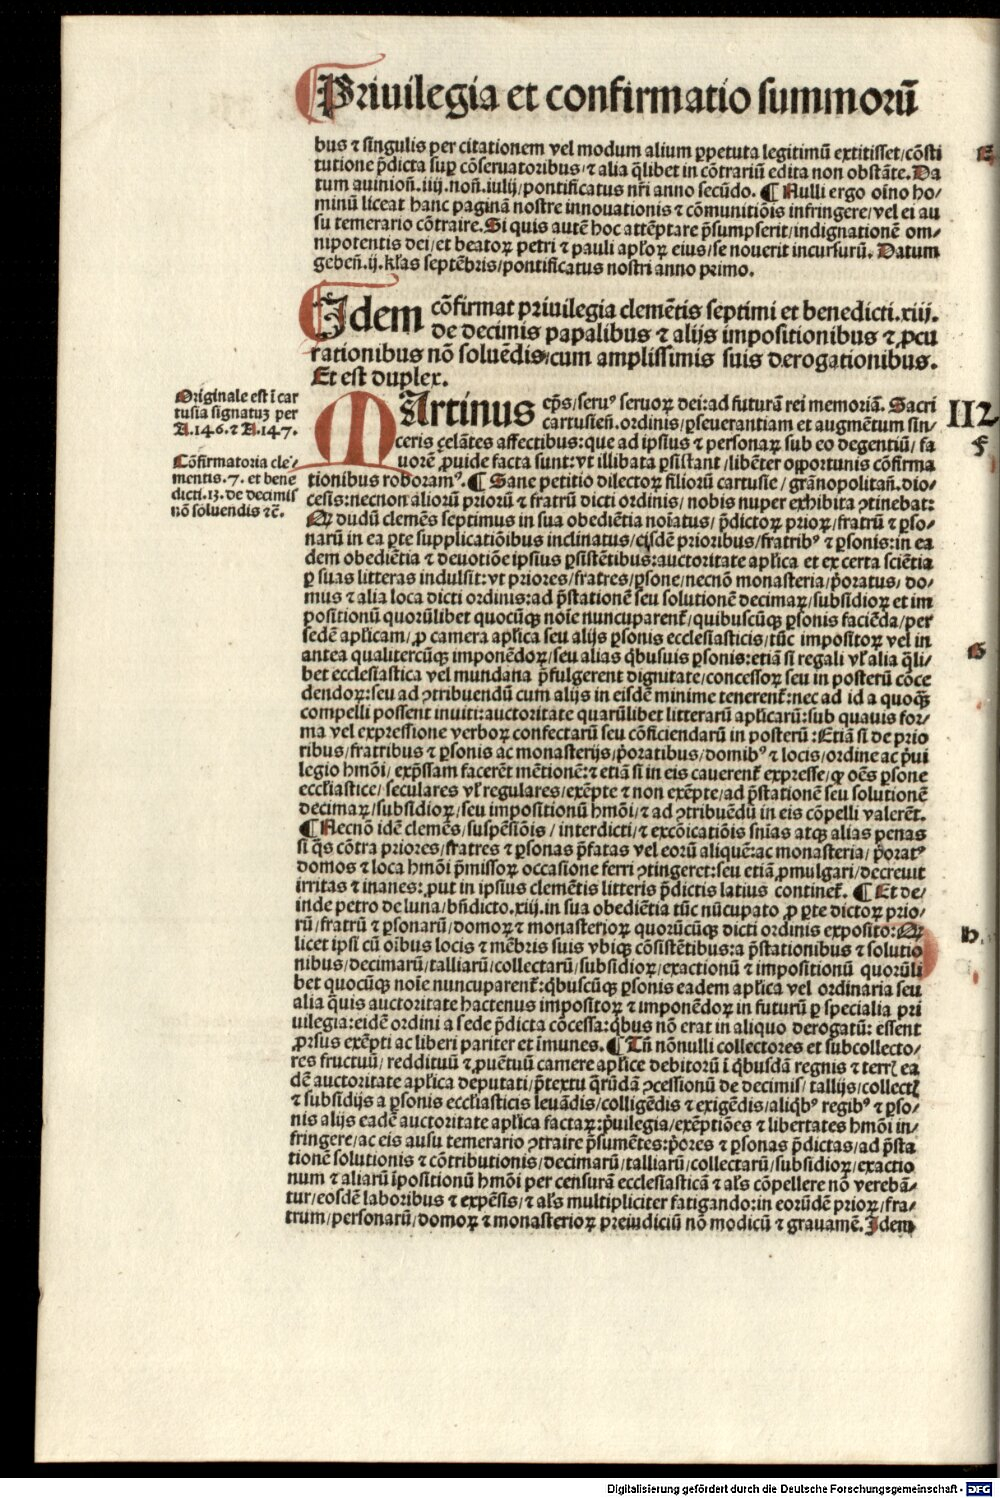 Priuilegia et confirmatio summorū
bus ⁊ singulis per citationem vel modum alium ꝑpetuta legitimū extitisset/cōsti
tutione p̄dicta suꝑ cōseruatoribus/⁊ alia q̄libet in cōtrariū edita non obstāte. Da
tum auinioñ.iiij.noñ.iulij/pontificatus nr̄i anno secūdo. ¶ Nulli ergo oīno ho/
minū liceat hanc paginā nostre innouationis ⁊ cōmunitiōis infringere/vel ei au
su temerario cōtraire. Si quis autē hoc attēptare p̄sumpserit/indignationē om/
nipotentis dei/et beatoꝝ petri ⁊ pauli apl'oꝝ eius/se nouerit incursurū. Datum
gebeñ.ij.kl'as septēbris/pontificatus nostri anno primo.
Idem cōfirmat priuilegia clemētis septimi et benedicti.xiij.
de decimis papalibus ⁊ alijs impositionibus ⁊ ꝓcu
rationibus nō soluēdis/cum amplissimis suis derogationibus.
Et est duplex.
Originale est ī car
tusia signatuꝫ per
A.146.⁊ A.147.
Cōfirmatoria cle/
mentis.7. et bene
dicti.13. de decimis
nō soluendis ⁊c̄.
MArtinus ep̄s/seruꝰ seruoꝝ dei:ad futurā rei memoriā. Sacri
cartusieñ.ordinis/ꝑseuerantiam et augmētum sin/
ceris çelātes affectibus:que ad ipsius ⁊ personaꝝ sub eo degentiū/fa
uorē ꝓuide facta sunt:vt illibata ꝑsistant/libēter oꝑportunis cōfirma
tionibus roboramꝰ. ¶ Sane petitio dilectoꝝ filiorū cartusie/gr̄anopolitañ.dio/
cesis:necnon aliorū priorū ⁊ fratrū dicti ordinis/nobis nuper exhibita ꝯtinebat:
Qꝝ dudū clemēs septimus in sua obediētia noīatus/p̄dictoꝝ prioꝝ/fratrū ⁊ ꝑso/
narū in ea ꝑte supplicatiōibus inclinatus/eisdē prioribus/fratribꝰ ⁊ ꝑsonis:in ea
dem obediētia ⁊ deuotiōe ipsius ꝑsistētibus:auctoritate apl'ica et ex certa sciētia
ꝑ suas litteras indulsit:vt priores/fratres/ꝑsone/necnō monasteria/p̄oratus/do/
mus ⁊ alia loca dicti ordinis:ad p̄stationē seu solutionē decimaꝝ/subsidioꝝ et im
positionū quorūlibet quocūqꝫ noīe nuncuparent̄/quibuscūqꝫ ꝑsonis faciēda/per
sedē apl'icam/ꝓ camera apl'ica seu alijs ꝑsonis ecclesiasticis/tūc impositoꝝ vel in
antea qualitercūqꝫ imponēdoꝝ/seu alias q̄busuis ꝑsonis:etiā si regali vl' alia q̄li/
bet ecclesiastica vel mundana p̄fulgerent dignitate/concessoꝝ seu in posterū cōce
dendoꝝ:seu ad ꝯtribuendū cum alijs in eisdē minime tenerent̄:nec ad id a quoqꝫ
compelli possent inuiti:auctoritate quarūlibet litterarū apl'icarū:sub quauis for/
ma vel expressione verboꝝ confectarū seu cōficiendarū in posterū:Etiā si de prio
ribus/fratribus ⁊ ꝑsonis ac monasterijs/p̄oratibus/domibꝰ ⁊ locis/ordine ac p̄ui
legio hmōi/exp̄ssam facerēt mētionē:⁊ etiā si in eis cauerent̄ expresse/qꝙ oēs ꝑsone
eccl'iastice/seculares vl' regulares/exēpte ⁊ non exēpte/ad p̄stationē seu solutionē
decimaꝝ/subsidioꝝ/seu impositionū hmōi/⁊ ad ꝯtribuēdū in eis cōpelli valerēt.
¶ Necnō idē clemēs/suspēsiōis/interdicti/⁊ excōicatiōis sn̄ias atqꝫ alias penas
si q̄s cōtra priores/fratres ⁊ ꝑsonas p̄fatas vel eorū aliquē:ac monasteria/p̄oratꝰ
domos ⁊ loca hmōi p̄missoꝝ occasione ferri ꝯtingeret:seu etiā ꝓmulgari/decreuit
irritas ⁊ inanes:ꝓut in ipsius clemētis litteris p̄dictis latius continet̄. ¶ Et de/
inde petro de luna/bn̄dicto.xiij.in sua obediētia tūc nūcupato ꝓ ꝑte dictoꝝ prio/
rū/fratrū ⁊ ꝑsonarū/domoꝝ ⁊ monasterioꝝ quorūcūqꝫ dicti ordinis exposito:Qꝝ
licet ipsi cū oībus locis ⁊ mēbris suis vbiqꝫ cōsistētibus:a p̄stationibus ⁊ solutio
nibus/decimarū/talliarū/collectarū/subsidioꝝ/exactionū ⁊ impositionū quorūli
bet quocūqꝫ noīe nuncuparent̄:q̄buscūqꝫ ꝑsonis eadem apl'ica vel ordinaria seu
alia q̄uis auctoritate hactenus impositoꝝ ⁊ imponēdoꝝ in futurū ꝑ specialia pri
uilegia:eidē ordini a sede p̄dicta cōcessa:q̄bus nō erat in aliquo derogatū: essent
ꝓrsus exēpti ac liberi pariter et īmunes. ¶ Tn̄ nōnulli collectores et subcollecto/
res fructuū/reddituū ⁊ ꝓuētuū camere apl'ice debitorū ī q̄busdā regnis ⁊ terrꝭ ea
dē auctoritate apl'ica deputati/p̄textu q̄rūdā ꝯcessionū de decimis/tallijs/collectꝭ
⁊ subsidijs a ꝑsonis eccl'iasticis leuādis/colligēdis ⁊ exigēdis/aliq̄bꝰ regibꝰ ⁊ ꝑso/
nis alijs eadē auctoritate apl'ica factaꝝ:p̄uilegia/exēptiōes ⁊ libertates hmōi in/
fringere/ac eis ausu temerario ꝯtraire p̄sumētes:p̄ores ⁊ ꝑsonas p̄dictas/ad p̄sta
tionē solutionis ⁊ cōtributionis/decimarū/talliarū/collectarū/subsidioꝝ/exactio
num ⁊ aliarū īpositionū hmōi per censurā ecclesiasticā ⁊ al's cōpellere nō verebā/
tur/eosdē laboribus ⁊ expēsis/⁊ al's multipliciter fatigando:in eorūdē prioꝝ/fra/
trum/personarū/domoꝝ ⁊ monasterioꝝ preiudiciū nō modicū ⁊ grauamē. Idem
E
112
F
G
h.
Digitalisierung gefördert durch die Deutsche Forschungsgemeinschaft - DFG